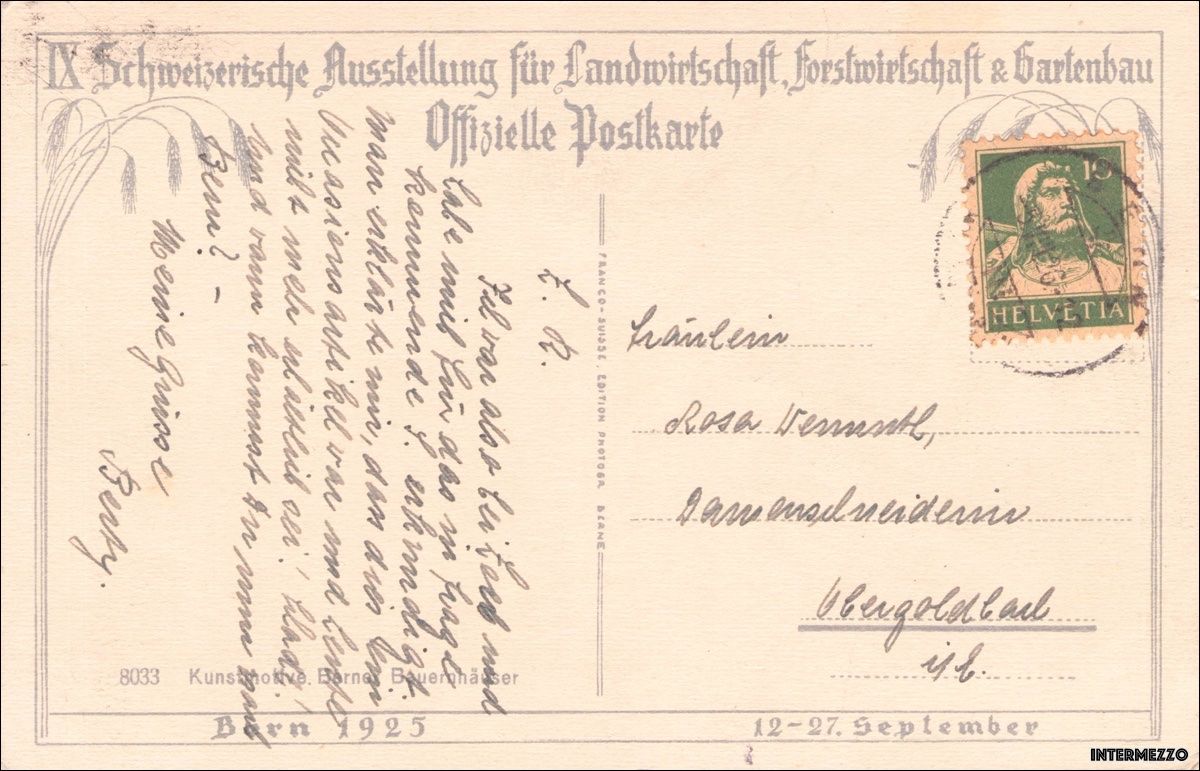 IX Schweizerische Ausstellung für Landwirtschaft, Forstwirtschaft & Gartenbau
Offizielle Postkarte
10
HELVETIA
L. R.
war also bei und
habe mich für das in Frage
kommende G. erkundigt.
Man erklärte mir, dass dies kein
artikel war und heute
nicht mehr sei. Schad!
Und wann kommst Du nun nach
Bern? -
Meine Grüsse
Berty.
FRANCO-SUISSE, EDITION PHOTOGR. BERNE
Fräulein
Rosa Wermuth,
Damenschneiderin
Obergoldbach
i/E.
8033 Kunstmotive Berner Bauernhäuser
Bern 1925 12-27. September
INTERMEZZO